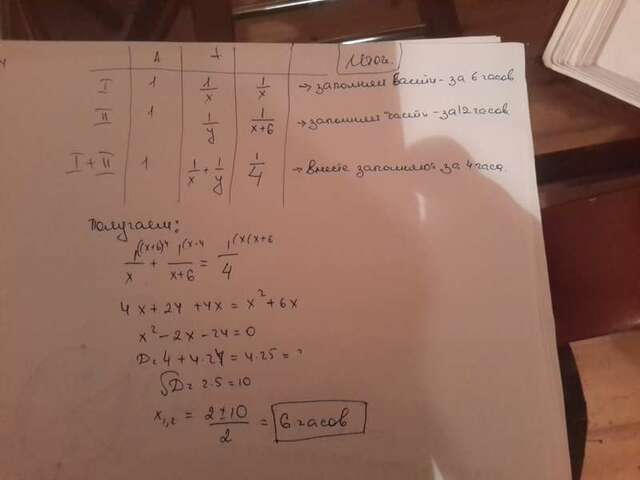 A t Итог.
I 1 1/x 1/x → заполняем бассейн - за 6 часов
II 1 1/y 1/x+6 → заполним часть - за 12 часов
I + II 1 1/x + 1/y 1/4 → вместе заполняют за 4 часа.
Получаем:
1/x + 1/x+6 = 1/4
4x + 24 + 4x = x² + 6x
x² - 2x - 24 = 0
D = 4 + 4·24 = 4·25 =
√D = 2·5 = 10
x₁,₂ = 2 ± 10 / 2 = 6 часов